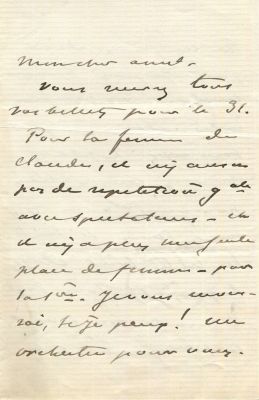 mon cher ami.
vous aurez tous
vos billets pour le 31.
Pour la femme de
Claude, il n'y aura
pas de repetition gale
avec spectateurs - et
il n'y a plus une seule
place de femme - pour
la 1ère. Je vous enver-
rai, si je peux! un
orchestre pour vous.